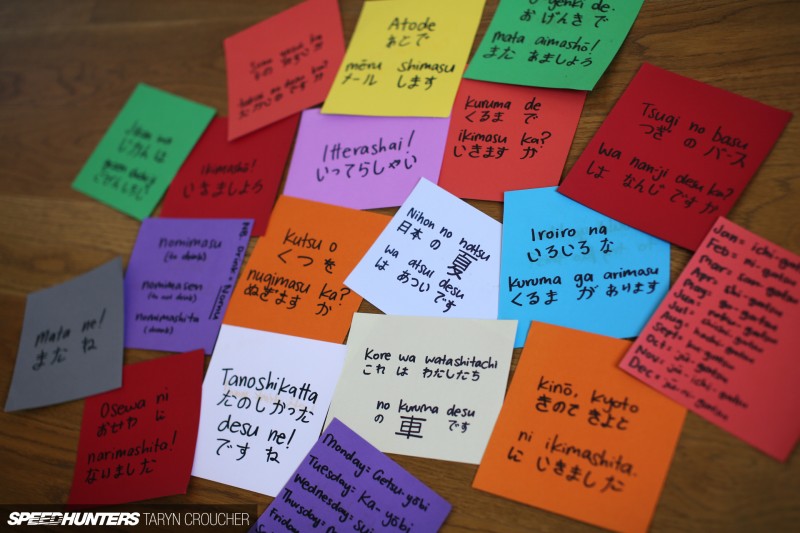 Atode
あとで
mēru shimasu
メール します
o genki de.
おげんきで
mata aimashō!
まだ あましょう
Itterashai!
いってらしゃい
kuruma de
くるま で
ikimasu ka?
いきます か
Tsugi no basu
つぎ の バース
wa nan-ji desu ka?
は なんじ ですか
ikimashō!
いきましょう
nomimasu
(to drink)
nomimasen
(to not drink)
nomimashita
(drank)
Kutsu o
くつ を
nugimasu ka?
ぬぎます か
Nihon no natsu
日本 の 夏
wa atsui desu
は あつい です
Iroiro na
いろいろ な
kuruma ga arimasu
くるま が あります
Jan= ichi-gatsu
Feb= ni-gatsu
Mar= san-gatsu
Apr= shi-gatsu
May= go-gatsu
Jun= roku-gatsu
Jul= shichi-gatsu
Aug= hachi-gatsu
Sept= ku-gatsu
Oct= jū-gatsu
Nov= jū-ichi-gatsu
Dec= jū-ni-gatsu
mata ne!
まだ ね
Osewa ni
おせわ に
narimashita!
なりました
Tanoshikatta
たのしかった
desu ne!
です ね
Kore wa watashitachi
これ は わたしたち
no kuruma desu
の 車 です
kinō, kyoto
きのて きよと
ni ikimashita.
に いきました
Monday= Getsu-yōbi
Tuesday= Ka-yōbi
Wednesday= Sui
Thursday=
Friday
SPEEDHUNTERS TARYN CROUCHER